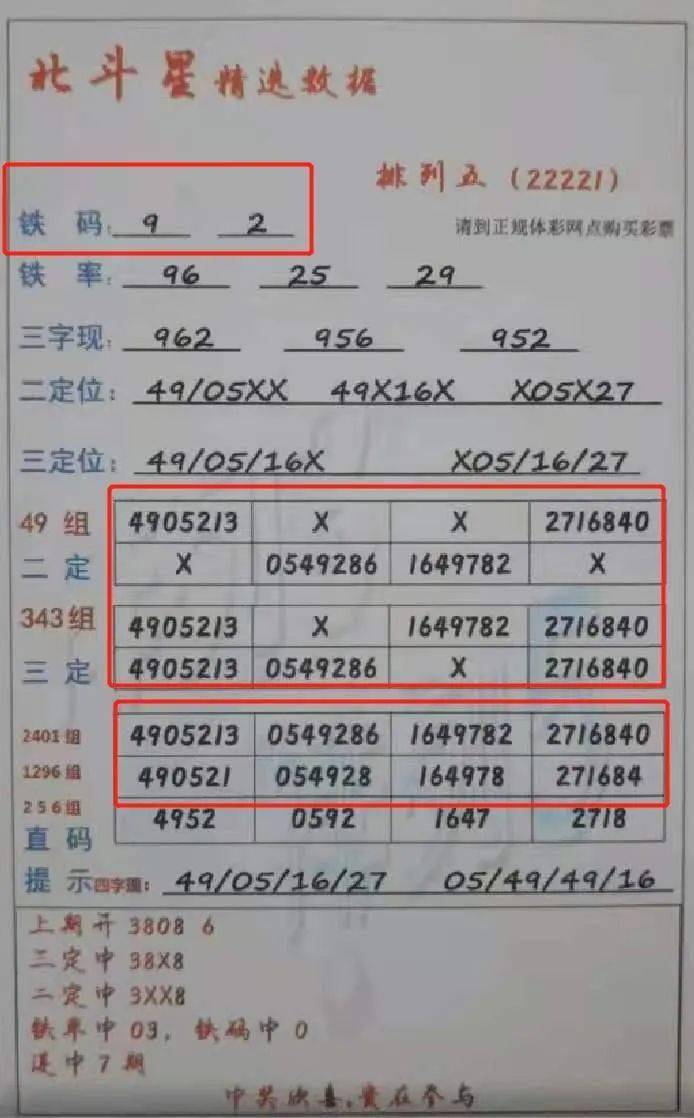 北斗星精选数据
排列五(22221)
铁 码: 9 2 请到正规体彩网点购买彩票
铁 率: 96 25 29
三字现: 962 956 952
二定位: 49/05XX 49X16X X05X27
三定位: 49/05/16X X05/16/27
49 组 4905213 X X 2716840
二 定 X 0549286 1649782 X
343组 4905213 X 1649782 2716840
三 定 4905213 0549286 X 2716840
2401组 4905213 0549286 1649782 2716840
1296组 490521 054928 164978 271684
256组 4952 0592 1647 2718
直 码
提 示四字圍: 49/05/16/27 05/49/49/16
上期开 3808 6
三定中 38X8
二定中 3XX8
铁率中 03, 铁码中 0
连中 7 期
中奖欣喜,贵在参与